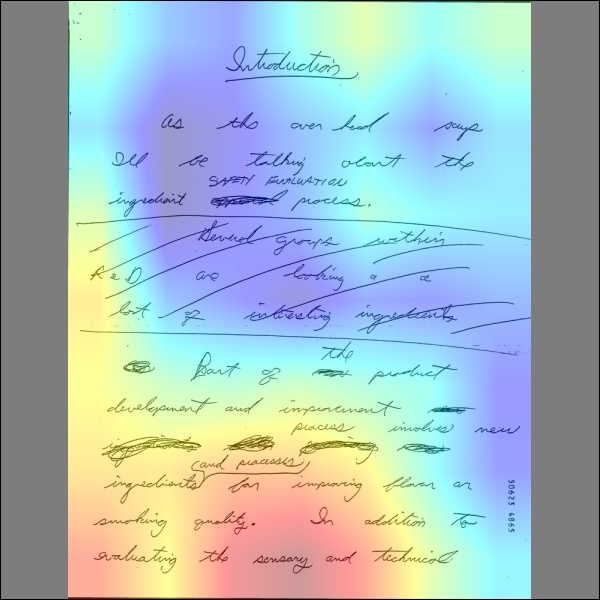 Introduction
As the over head says
I'll be talking about the
SAFETY EVALUATION
ingredient process.
Several groups within
R & D are looking a a
lot of interesting ingredients
the
Part of product
development and improvement
process involves new
(and processes)
ingredients for improving flavor or
smoking quality. In addition to
evaluating the sensory and technical
50623 4865